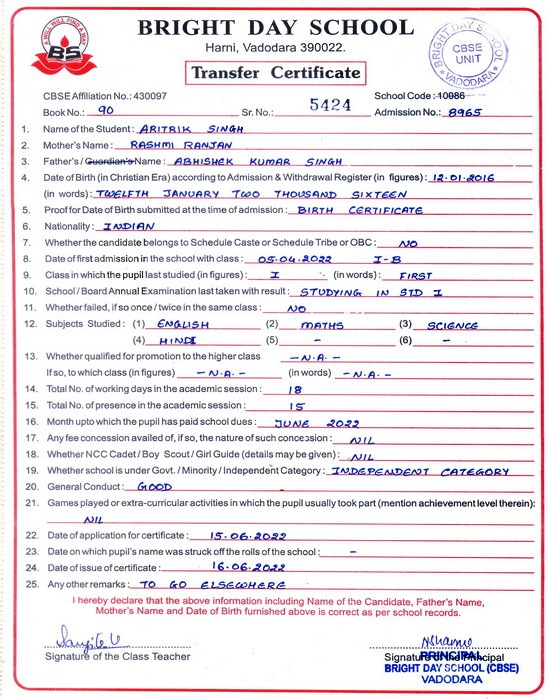 A WILL WILL FIND A WAY
BS
BRIGHT DAY SCHOOL
Harni, Vadodara 390022.
Transfer Certificate
BRIGHT DAY SCHOOL
CBSE
UNIT
VADODARA
CBSE Affiliation No.: 430097 School Code : 10086
Book No.: 90 Sr. No.: 5424 Admission No.: 8965
1. Name of the Student : ARITRIK SINGH
2. Mother's Name : RASHMI RANJAN
3. Father's / Guardian's Name : ABHISHEK KUMAR SINGH
4. Date of Birth (in Christian Era) according to Admission & Withdrawal Register (in figures) : 12.01.2016
(in words) : TWELFTH JANUARY TWO THOUSAND SIXTEEN
5. Proof for Date of Birth submitted at the time of admission : BIRTH CERTIFICATE
6. Nationality : INDIAN
7. Whether the candidate belongs to Schedule Caste or Schedule Tribe or OBC : NO
8. Date of first admission in the school with class : 05.04.2022 I-B
9. Class in which the pupil last studied (in figures) : I (in words) : FIRST
10. School / Board Annual Examination last taken with result : STUDYING IN STD I
11. Whether failed, if so once / twice in the same class : NO
12. Subjects Studied : (1) ENGLISH (2) MATHS (3) SCIENCE
(4) HINDI (5) - (6) -
13. Whether qualified for promotion to the higher class -N.A.-
If so, to which class (in figures) -N.A.- (in words) -N.A.-
14. Total No. of working days in the academic session : 18
15. Total No. of presence in the academic session : 15
16. Month upto which the pupil has paid school dues : JUNE 2022
17. Any fee concession availed of, if so, the nature of such concession : NIL
18. Whether NCC Cadet / Boy Scout / Girl Guide (details may be given) : NIL
19. Whether school is under Govt. / Minority / Independent Category : INDEPENDENT CATEGORY
20. General Conduct : GOOD
21. Games played or extra-curricular activities in which the pupil usually took part (mention achievement level therein) :
NIL
22. Date of application for certificate : 15.06.2022
23. Date on which pupil's name was struck off the rolls of the school : -
24. Date of issue of certificate : 16.06.2022
25. Any other remarks : TO GO ELSEWHERE
I hereby declare that the above information including Name of the Candidate, Father's Name,
Mother's Name and Date of Birth furnished above is correct as per school records.
Signature of the Class Teacher Signature of the Principal
PRINCIPAL
BRIGHT DAY SCHOOL (CBSE)
VADODARA